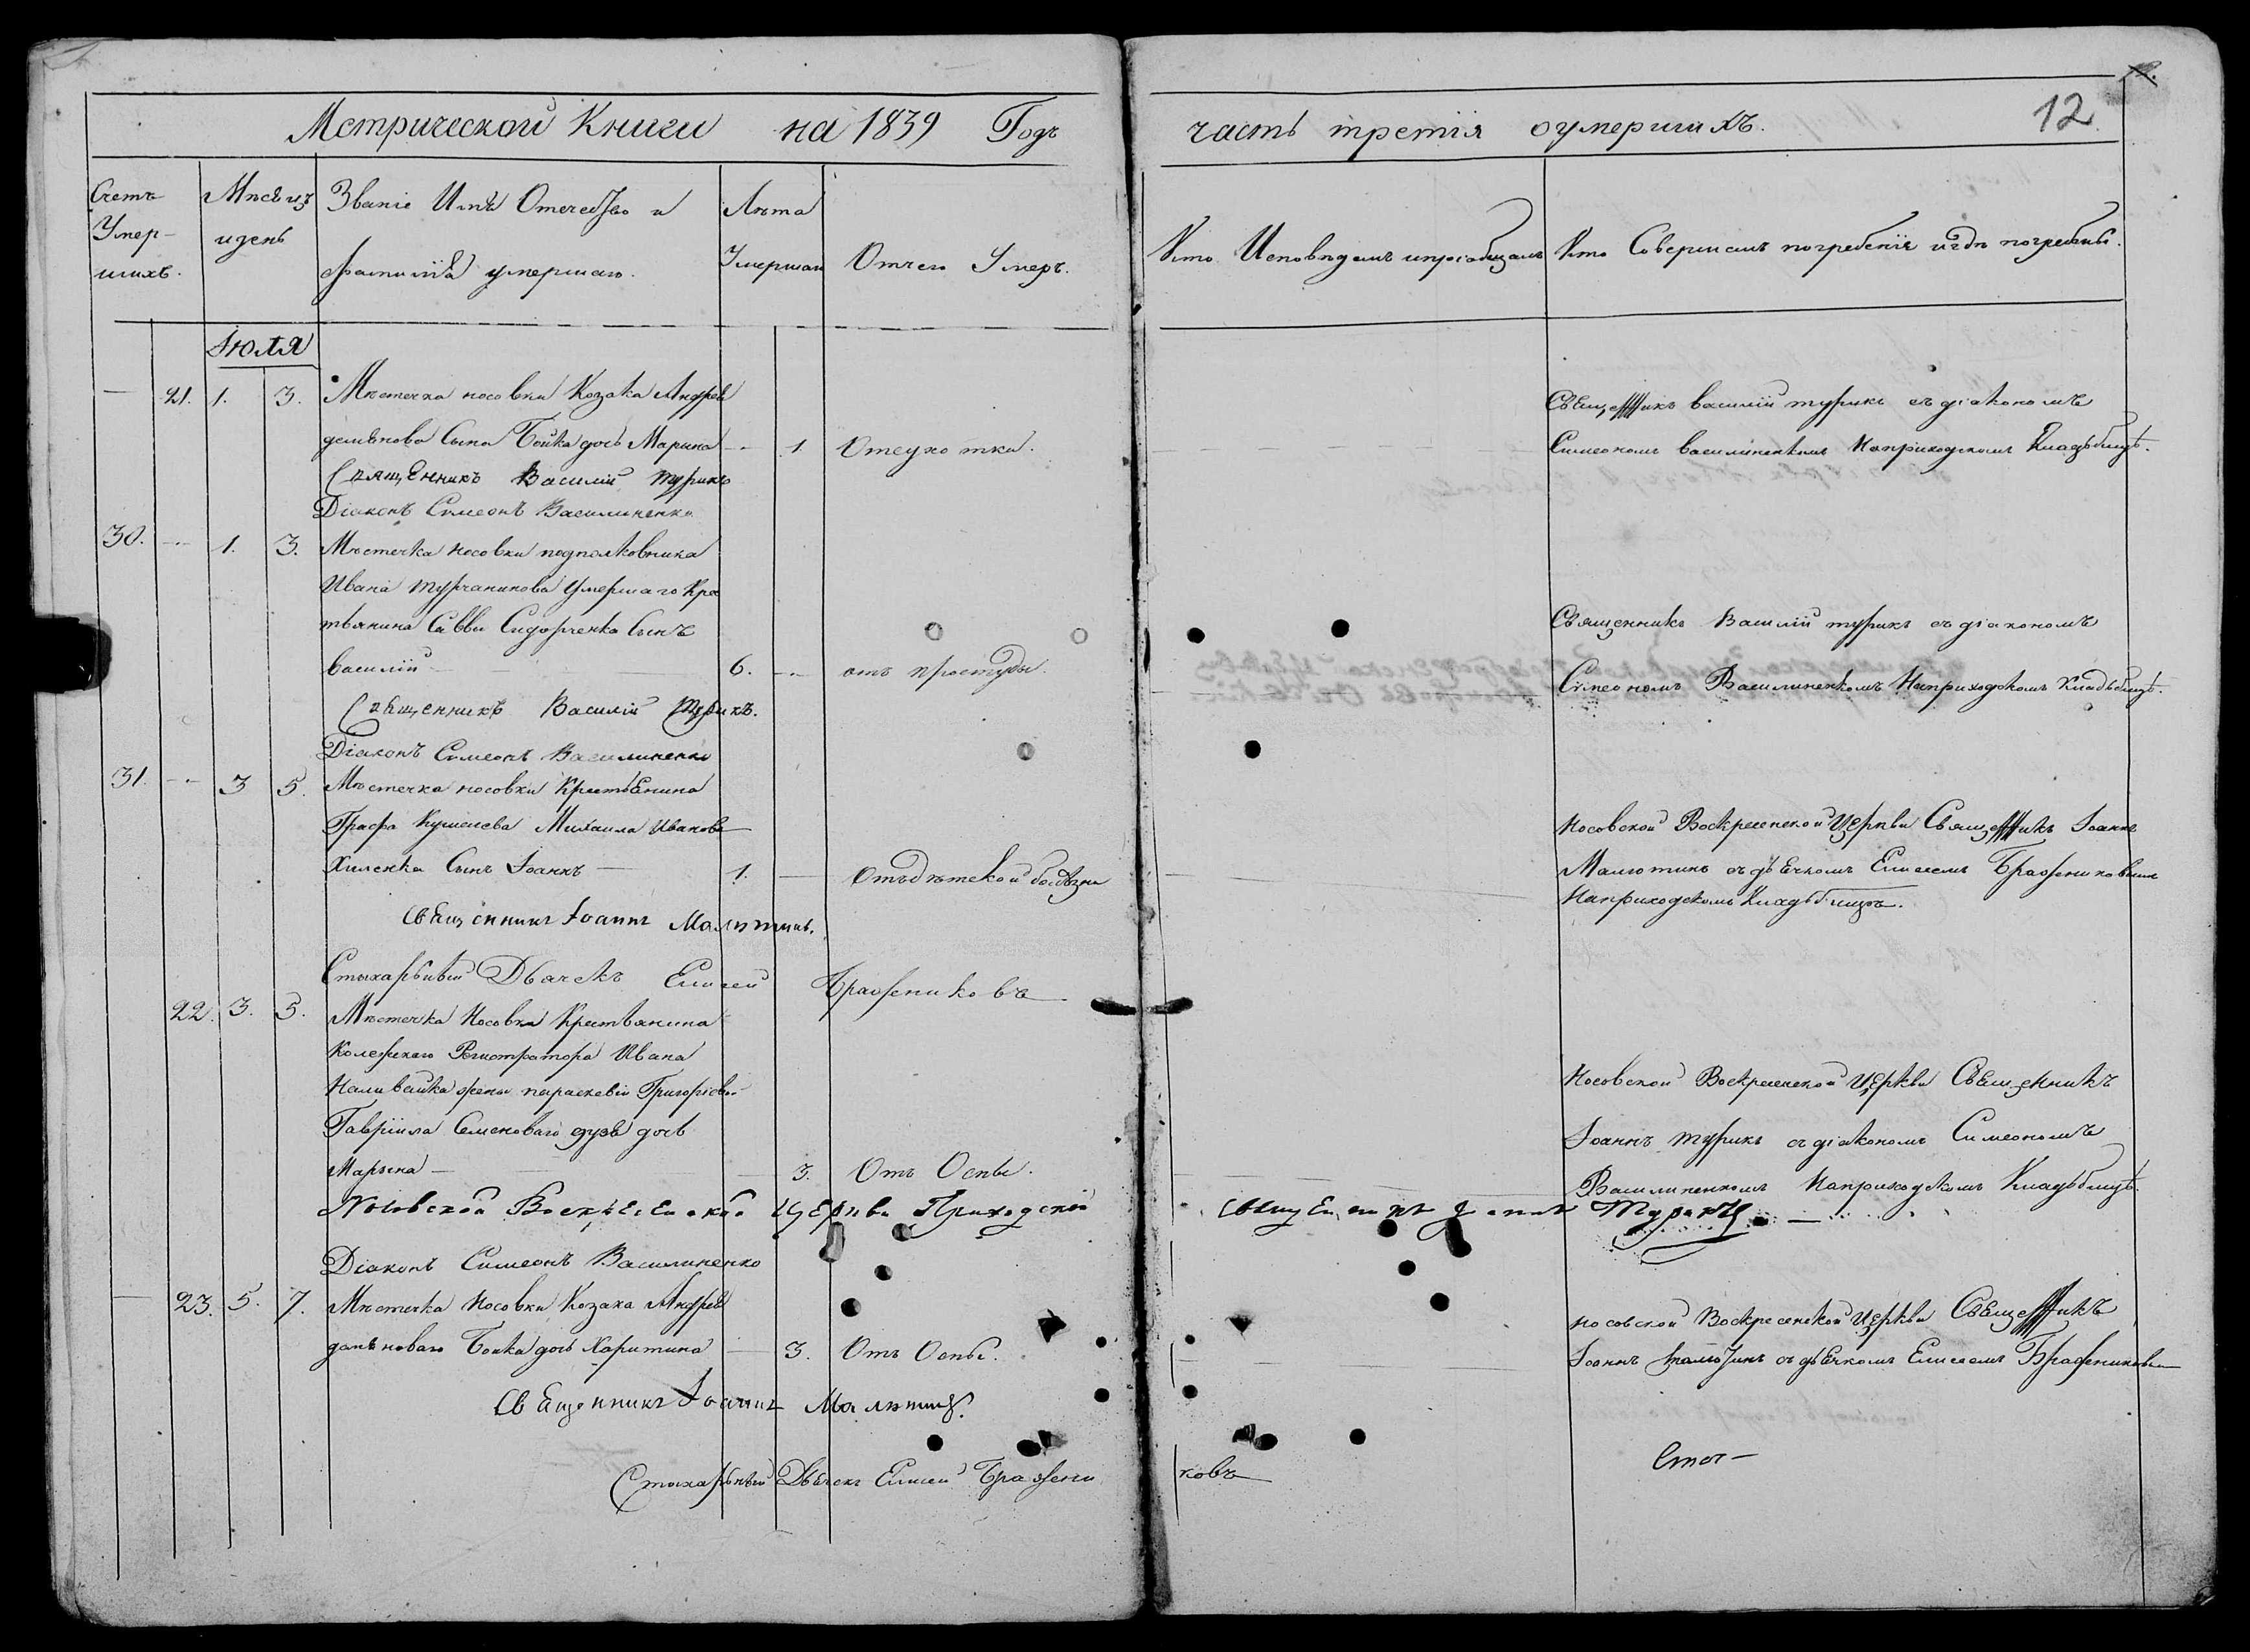 Метрической Книги на 1839 Годъ
часть третія оумершихъ.
12
Счетъ Умер-шихъ.
Мѣсяцъ и день
Званіе Имя Отечество и фамилія умершаго.
Лѣта Умершаго
Отчего Умеръ.
Кто Исповѣдалъ и пріобщалъ
Кто Совершалъ погребеніе и гдѣ погребены.
Іюля
— 21. 1. 3. Мѣстечка носовки Козака Андрея
демянова Сына Бойка дочь Марина — 1. Отсухотки.
Священникъ василій турикъ съ діакономъ
Симеономъ василиненкомъ Наприходскомъ Кладбищѣ.
Священникъ Василій Турикъ
Діаконъ Симеонъ Василиненко
30. — 1. 3. Мѣстечка носовки подполковника
Ивана турчанинова умершаго Кре
стьянина Саввы Сидорченка Сынъ
василій — 6. — отъ простуды.
Священникъ Василій турикъ съ діакономъ
Симеономъ Василиненкомъ Наприходскомъ Кладбищѣ.
Священникъ Василій Турикъ.
Діаконъ Симеонъ Василиненко
31. — 3 5. Мѣстечка носовки Крестьянина
Графа Кушелева Михаила Иванова
Хиленка Сынъ Іоаннъ — 1. — Отъдѣтской болѣзни
Носовской Воскресенской Церкви Священникъ Іоаннъ
Малютинъ съ дьячкомъ Елисеемъ Бражениковымъ
Наприходскомъ Кладбищѣ.
Священникъ Іоаннъ Малютинъ.
Стихарный Дьячекъ Елисей Бражениковъ
22. 3. 5. Мѣстечка Носовки Крестьянина
Колежскаго Регистратора Ивана
Наливайка жены параскевіи Григоріевой
Гавріила Семеноваго дочь
Марына — 3. Отъ Оспы.
Носовской Воскресенской Церкви Священникъ
Іоаннъ турикъ съ діакономъ Симеономъ
Василиненкомъ Наприходскомъ Кладбищѣ.
Носовской Воскресенской Церкви Приходской Священникъ Іоаннъ Турикъ
Діаконъ Симеонъ Василиненко
— 23. 5. 7. Мѣстечка Носовки Козака Андрея
демяноваго Бойка дочь Харитина — 3. Отъ Оспы.
носовской Воскресенской Церкви Священникъ
Іоаннъ Малютинъ съ дьячкомъ Елисеемъ Бражениковымъ
Священникъ Іоаннъ Малютинъ.
Стихарный Дьячекъ Елисей Бражениковъ